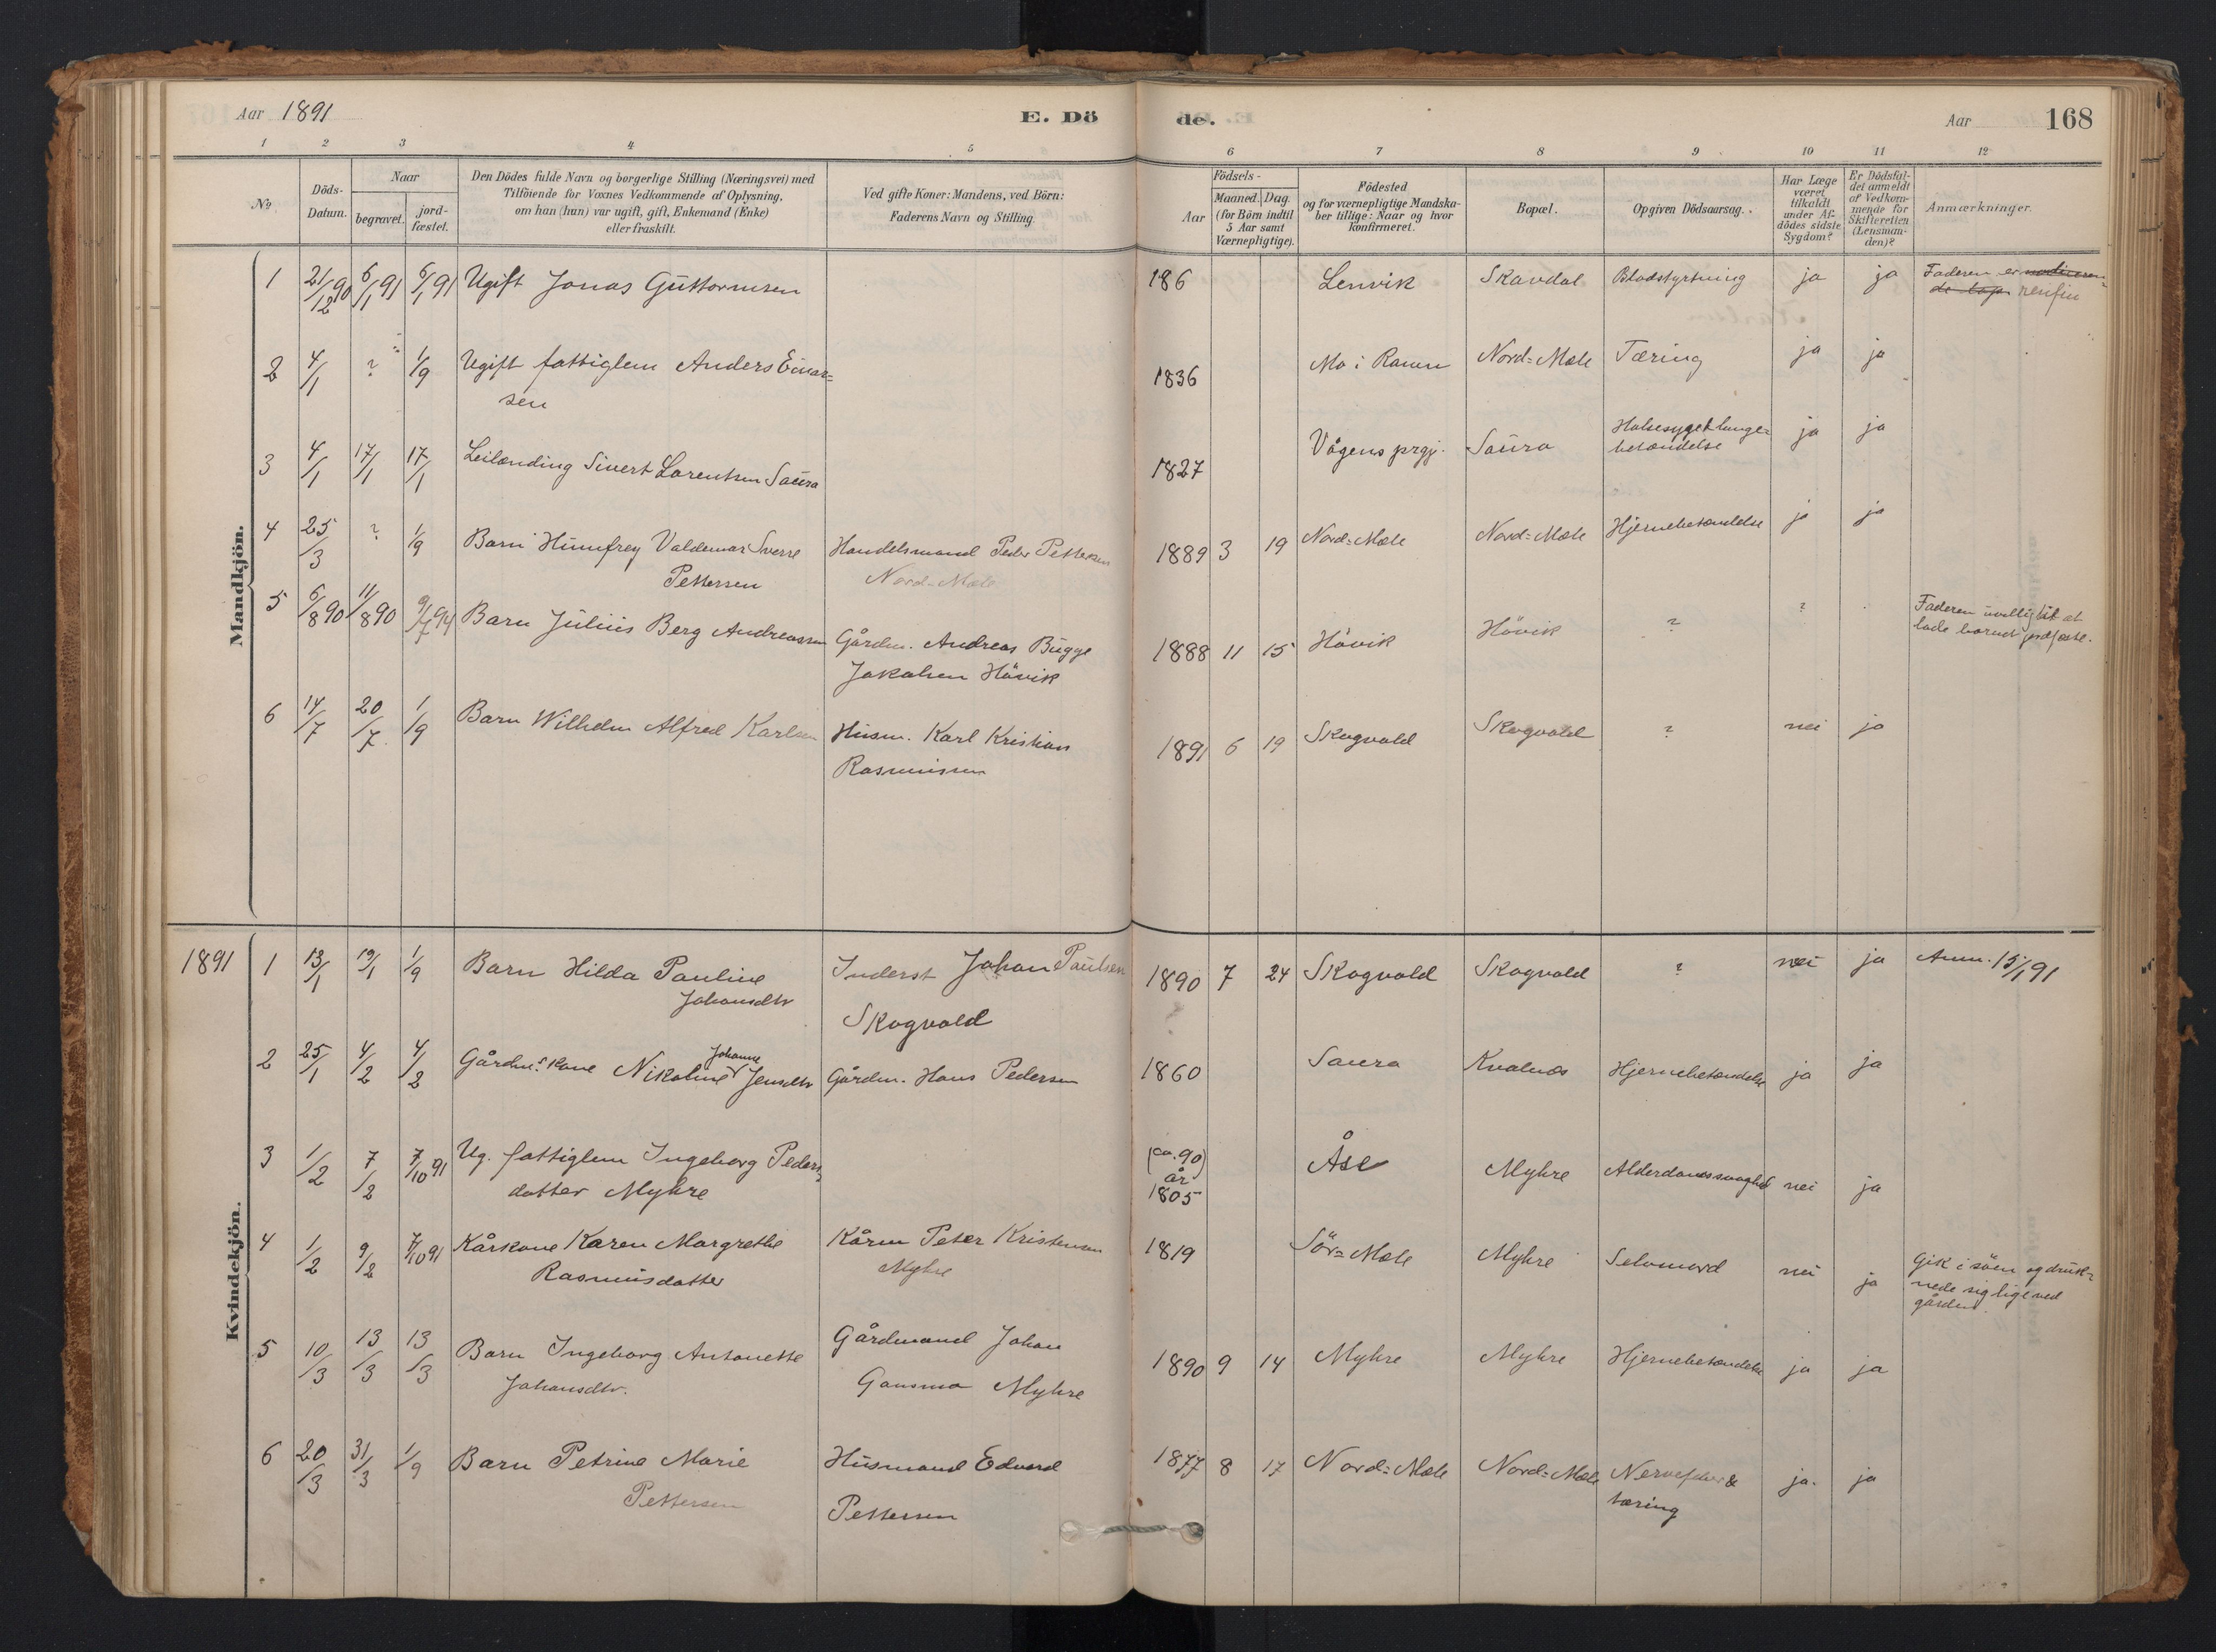 Aar 1891 E. Dö de. Aar 168
1 2 3 4 5 6 7 8 9 10 11 12
No
Döds-
Datum.
Naar
begravet.
jord-
fæstet.
Den Dödes fulde Navn og borgerlige Stilling (Næringsvei) med
Tilföiende for Voxnes Vedkommende af Oplysning,
om han (hun) var ugift, gift, Enkemand (Enke)
eller fraskilt.
Ved gifte Koner: Mandens, ved Börn:
Faderens Navn og Stilling.
Födsels-
Aar
Maaned. Dag.
(for Börn indtil
5 Aar samt
Værnepligtige).
Födested
og for værnepligtige Mandska-
ber tillige: Naar og hvor
konfirmeret.
Bopæl.
Opgiven Dödsaarsag.
Har Læge
været
tilkaldt
under Af-
dödes sidste
Sygdom?
Er Dödsfal-
det anmeldt
af Vedkom-
mende for
Skifteretten
(Lensman-
den)?
Anmærkninger.
Mandkjön.
1 21/12 90 6/1 91 6/1 91 Ugift Jonas Guttormsen 186 Lenvik Skavdal Blodstyrtning ja ja Faderen er
2 4/1 ? 1/9 Ugift fattiglem Anders Einar=
sen 1836 Mo i Ranen Nord=Mæle Tæring ja ja
3 4/1 17/1 17/1 Leilænding Sivert Lorentsen Saura 1827 Vågens prgj. Saura Halsesyge & lunge=
betændelse ja ja
4 25/3 ? 1/9 Barn Humfrey Valdemar Sverre
Pettersen Handelsmand Peder Pettersen
Nord=Mæle 1889 3 19 Nord=Mæle Nord=Mæle Hjernebetændelse ja ja
5 6/8 90 11/8 90 9/7 94 Barn Julius Berg Andreassen Gårdm. Andreas Bugge
Jakobsen Hövik 1888 11 15 Hövik Hövik ? ? Faderen uvillig til at
lade barnet jordfæste.
6 14/7 20/7 1/9 Barn Wilhelm Alfred Karlsen Husm. Karl Kristian
Rasmussen 1891 6 19 Skogvold Skogvold ? nei ja
Kvindekjön.
1891 1 13/1 19/1 1/9 Barn Hilda Pauline
Johansdtr Inderst Johan Paulsen
Skogvold 1890 7 24 Skogvold Skogvold ? nei ja Anm. 15/1 91
2 25/1 4/2 4/2 Gårdm.s kone Nikoline Johanne Jensdtr Gårdm. Hans Pedersen 1860 Saura Kvalnæs Hjernebetændelse ja ja
3 1/2 7/2 7/10 91 Ug. fattiglem Ingeborg Peders=
datter Myhre (ca. 90)
år
1805 Åse Myhre Alderdomssvaghed nei ja
4 1/2 9/2 7/10 91 Kårkone Karen Margrethe
Rasmusdatter Kårm Peter Kristensen
Myhre 1819 Sör=Mæle Myhre Selvmord nei ja Gik i söen og druk=
nede sig lige ved
gården.
5 10/3 13/3 13/3 Barn Ingeborg Antonette
Johansdtr. Gårdmand Johan
Gansmo Myhre 1890 9 14 Myhre Myhre Hjernebetændelse ja ja
6 20/3 31/3 1/9 Barn Petrine Marie
Pettersen Husmand Edvard
Pettersen 1877 8 17 Nord=Mæle Nord=Mæle Nervefeber &
tæring ja. ja